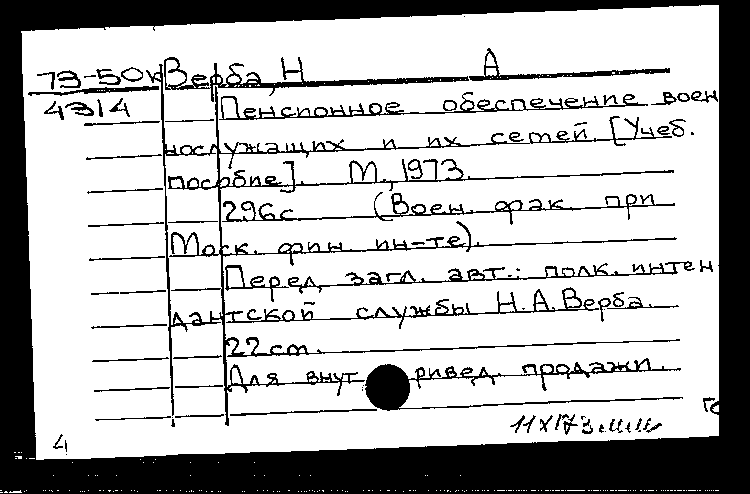 73-50к Верба, Н А
4314 Пенсионное обеспечение воен
нослужащих и их сетей. [Учеб.
пособие]. М., 1973.
296с. (Воен. фак. при
Моск. фин. ин-те).
Перед загл. авт.: полк. интен
дантской службы Н.А. Верба.
22 cm.
Для внут ривед. продажи.
4